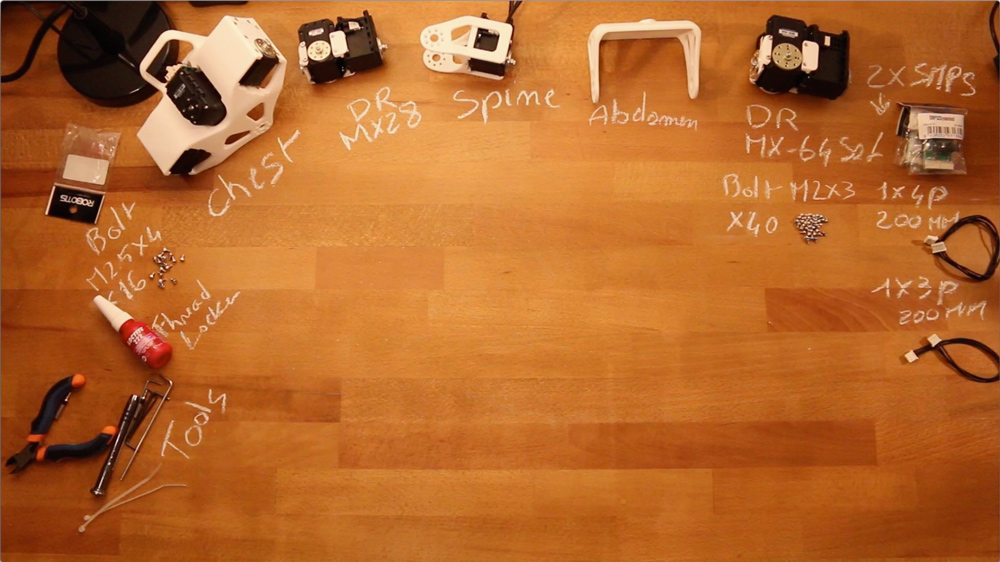 Chest
DR
MX28
Spine
Abdomen
DR
MX-64 Set
2XSMPS
Bolt M2X3
X40
1X4P
200MM
1X3P
200MM
ROBOTIS
Bolt
M2.5X4
X16
Thread
Locker
Tools